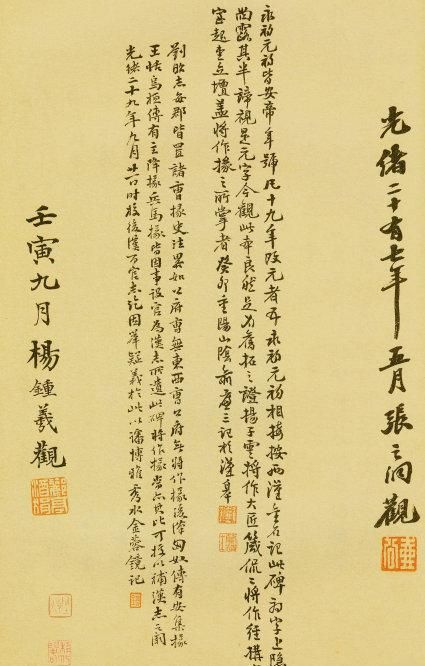 光緒二十有七年五月張之洞觀
永初元初皆安帝年號凡十九年改元者五永初元初相接按兩漢金石記此碑初字上隱
尚露其半諦視是元字今觀此本良然足為舊拓之證揚子雲將作大匠箴侃侃將作經構
宮起立壇蓋將作掾之所掌者癸卯重陽山陰俞廉三記於漢皋
劉昭志每郡皆置諸曹掾史注畧如公府曹無東西曹公府無將作掾後漢匈奴傳有安集掾
王恬烏桓傳有主降掾兵馬掾皆因事設官為漢志所遺此碑將作掾當亦其比可援以補漢志之闕
光緒二十九年九月廿日時校後漢百官志訖因举疑義於此以諗博雅秀水金蓉鏡記
壬寅九月楊鍾羲觀